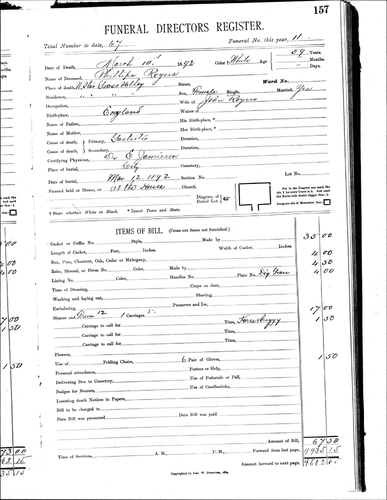 157
FUNERAL DIRECTORS REGISTER.
Total Number to date, 67 Funeral No. this year, 11
Date of Death, March 10" 1892 Color* White Age 59 Years.
Name of Deceased, Phillipa Rogers Months.
Place of death, N. Star Grass Valley Street. Ward No. Days.
Residence, " " Sex, Female Single. Married, Yes
Occupation, Wife of John Rogers
Birthplace, England Widow of
Name of Father, His Birthplace, †
Name of Mother, Her Birthplace, †
Cause of death, Primary, Gastritis Duration,
Cause of death, Secondary, Duration,
Certifying Physician, Dr E. Jamieson
Place of burial, City Cemetery,
Date of burial, Mar 12 1892 Section No. Lot No.
Funeral held at House, or at the House
Diagram of Burial Lot.
For in the Diagram use mark
* State whether White or Black. † Insert Town and State.
ITEMS OF BILL. (Cross out items not furnished.)
Casket or Coffin No. Style, Made by 35 00
Length of Casket, Feet, Inches. Width of Casket, Inches.
Box, Pine, Chestnut, Oak, Cedar or Mahogany, 4 00
Robe, Shroud, or Dress No. Color, Made by 4 50
Lining No. Color, Handles No. Plate No. Dig Grave 4 00
Time of Dressing, Crape on door,
Washing and laying out, Shaving,
Embalming, Preserver and Ice,
Hearse and 1 Carriages, 17 00
Carriage to call for Time, 1 50
Carriage to call for Time,
Carriage to call for Time,
Flowers,
Use of Folding Chairs, 6 Pair of Gloves, 1 50
Personal attendance, Porters or Help,
Delivering Box to Cemetery, Use of Pedestals or Pall,
Badges for Bearers, Use of Candlesticks,
Inserting death Notices in Papers,
Bill to be charged to
Date Bill was presented Date Bill was paid
Amount of Bill, 67 50
Time of Services, A. M., P. M., Forward from last page,
Amount forward to next page,